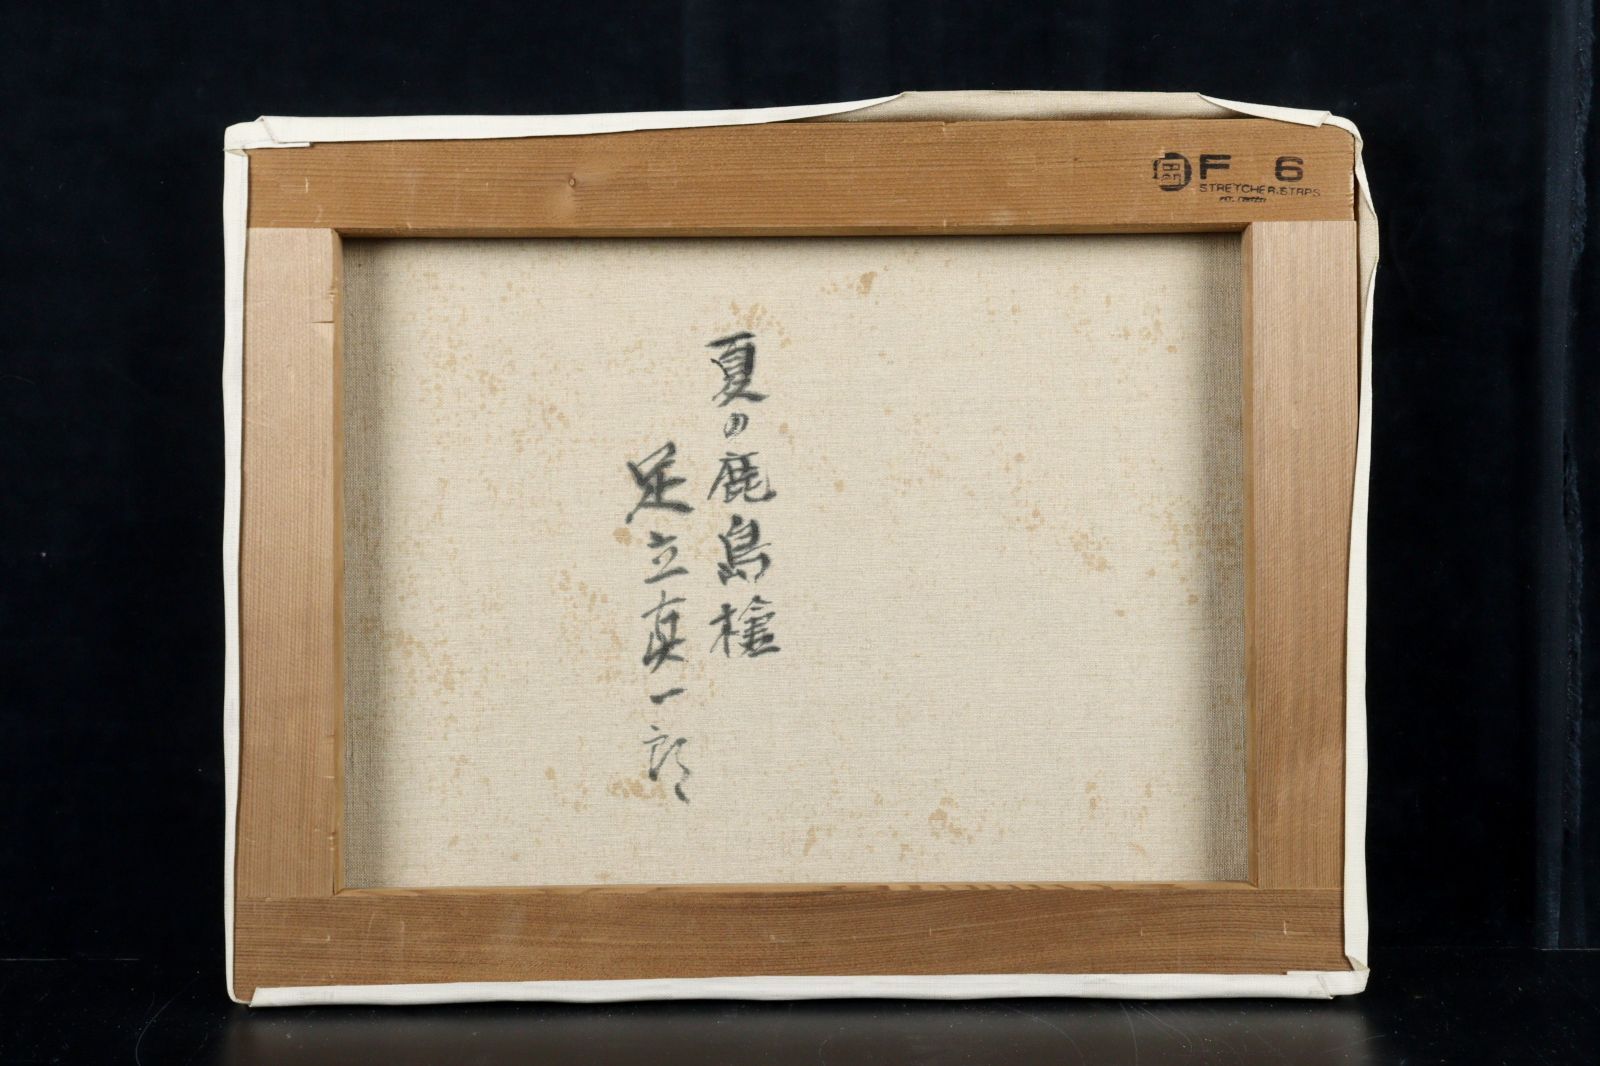 夏の鹿島槍
足立真一郎
F 6
STRETCHER.STRPS